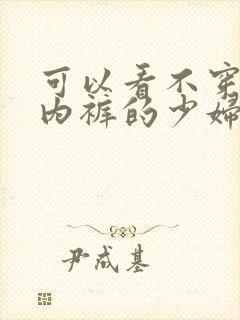 可以看不穿
内裤的少妇
尹成基